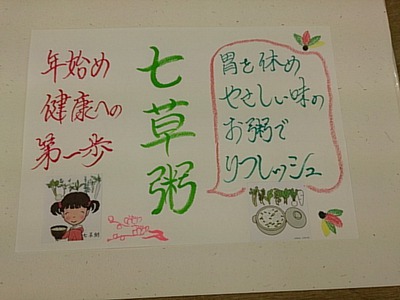 年始め
健康への
第一歩
七草粥
胃を休め
やさしい味の
お粥で
リフレッシュ
七草粥